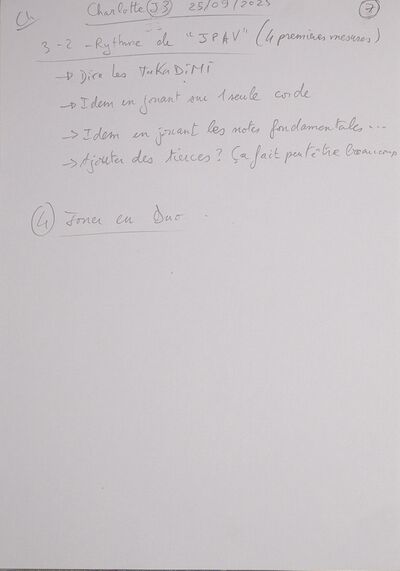 Ch Charlotte (J3) 25/09/2023 7
3-2-Rythme de "JPAV" (4 premières mesures)
→ Dire les TaKaDiMi
→ Idem en jouant sur 1 seule corde
→ Idem en jouant les notes fondamentales...
→ Ajouter des tierces? Ça fait peut être beaucoup
4 Jouer en Duo.